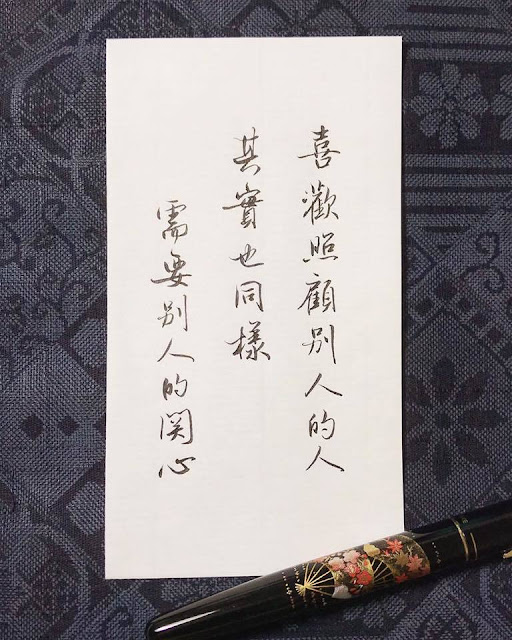 喜歡照顧別人的人
其實也同樣
需要別人的関心